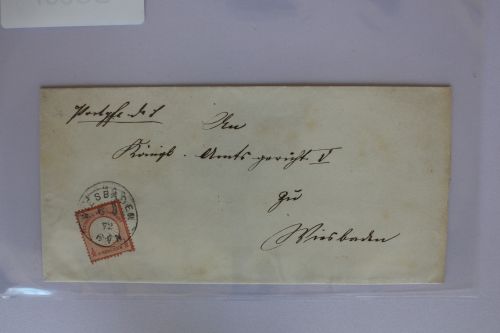 An
Königl. Amtsgericht V
zu
Wiesbaden
WIESBADEN